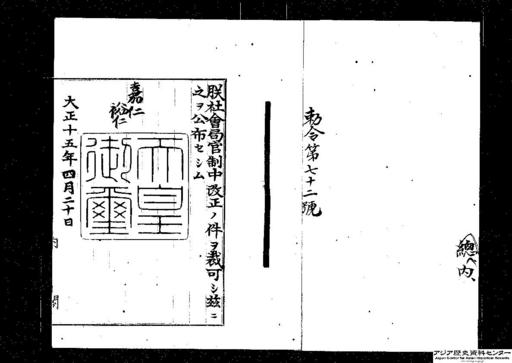 總
内
勅令第七十二號
朕社會局官制中改正ノ件ヲ裁可シ茲ニ
之ヲ公布セシム
嘉仁
裕仁
天皇
御璽
大正十五年四月二十日
内閣
アジア歴史資料センター
Japan Center for Asian Historical Records